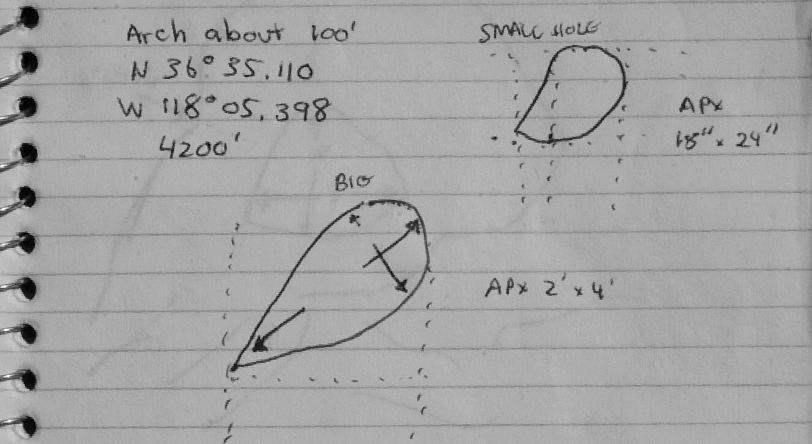 Arch about 100'
N 36° 35.110
W 118° 05.398
4200'
SMALL HOLE
APX
18" x 24"
BIG
APX 2' x 4'